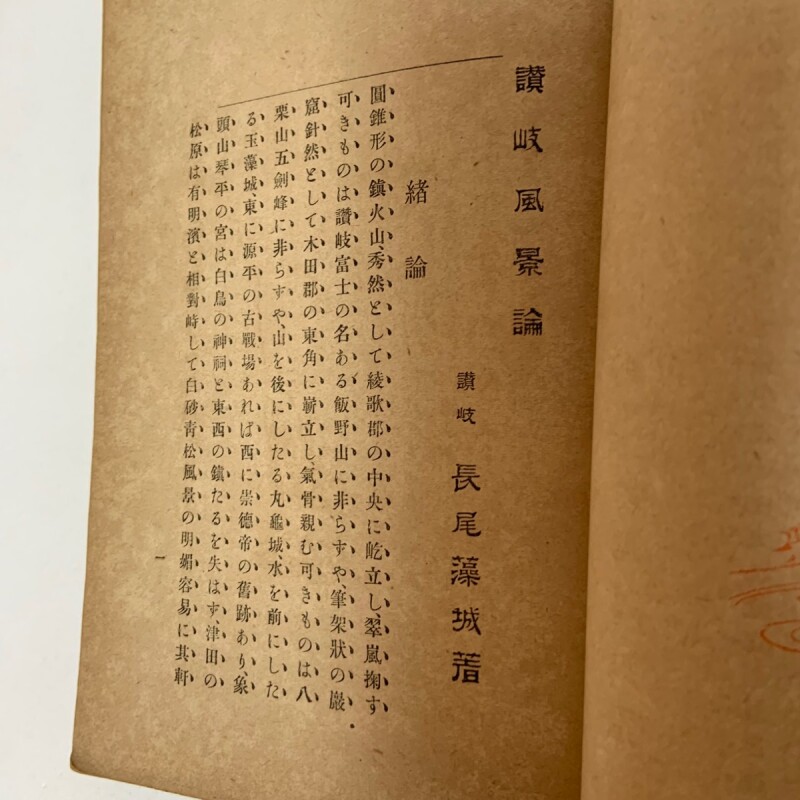 讃岐風景論
讃岐 長尾藻城著
緒論
圓錐形の鎭火山、秀然として綾歌郡の中央に屹立し、翠嵐掬す
可きものは讃岐富士の名ある飯野山に非らずや、筆架狀の巖
窟針然として木田郡の東角に嶄立し、氣骨親む可きものは八
栗山五劍峰に非らずや、山を後にしたる丸龜城、水を前にした
る玉藻城、東に源平の古戰場あれば西に崇德帝の舊跡あり、象
頭山琴平の宮は白鳥の神祠と東西の鎭たるを失はず、津田の
松原は有明濱と相對峙して白砂靑松風景の明媚容易に其軒
一